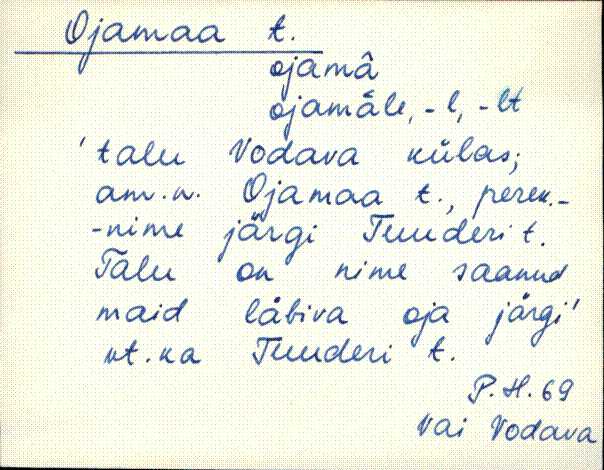 Ojamaa t.
ojamâ
ojamäle, -l, -lt
'talu Vodava külas;
am.n. Ojamaa t., perek.-
-nime järgi Tuuderi t.
Talu on nime saanud
maid läbiva oja järgi'
vt. ka Tuuderi t.
P.H. 69
Vai Vodava